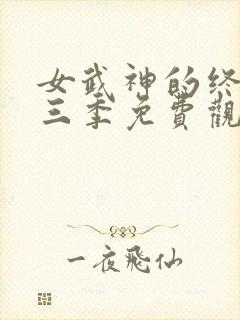 女武神的终
三季免費觀
一夜飛仙